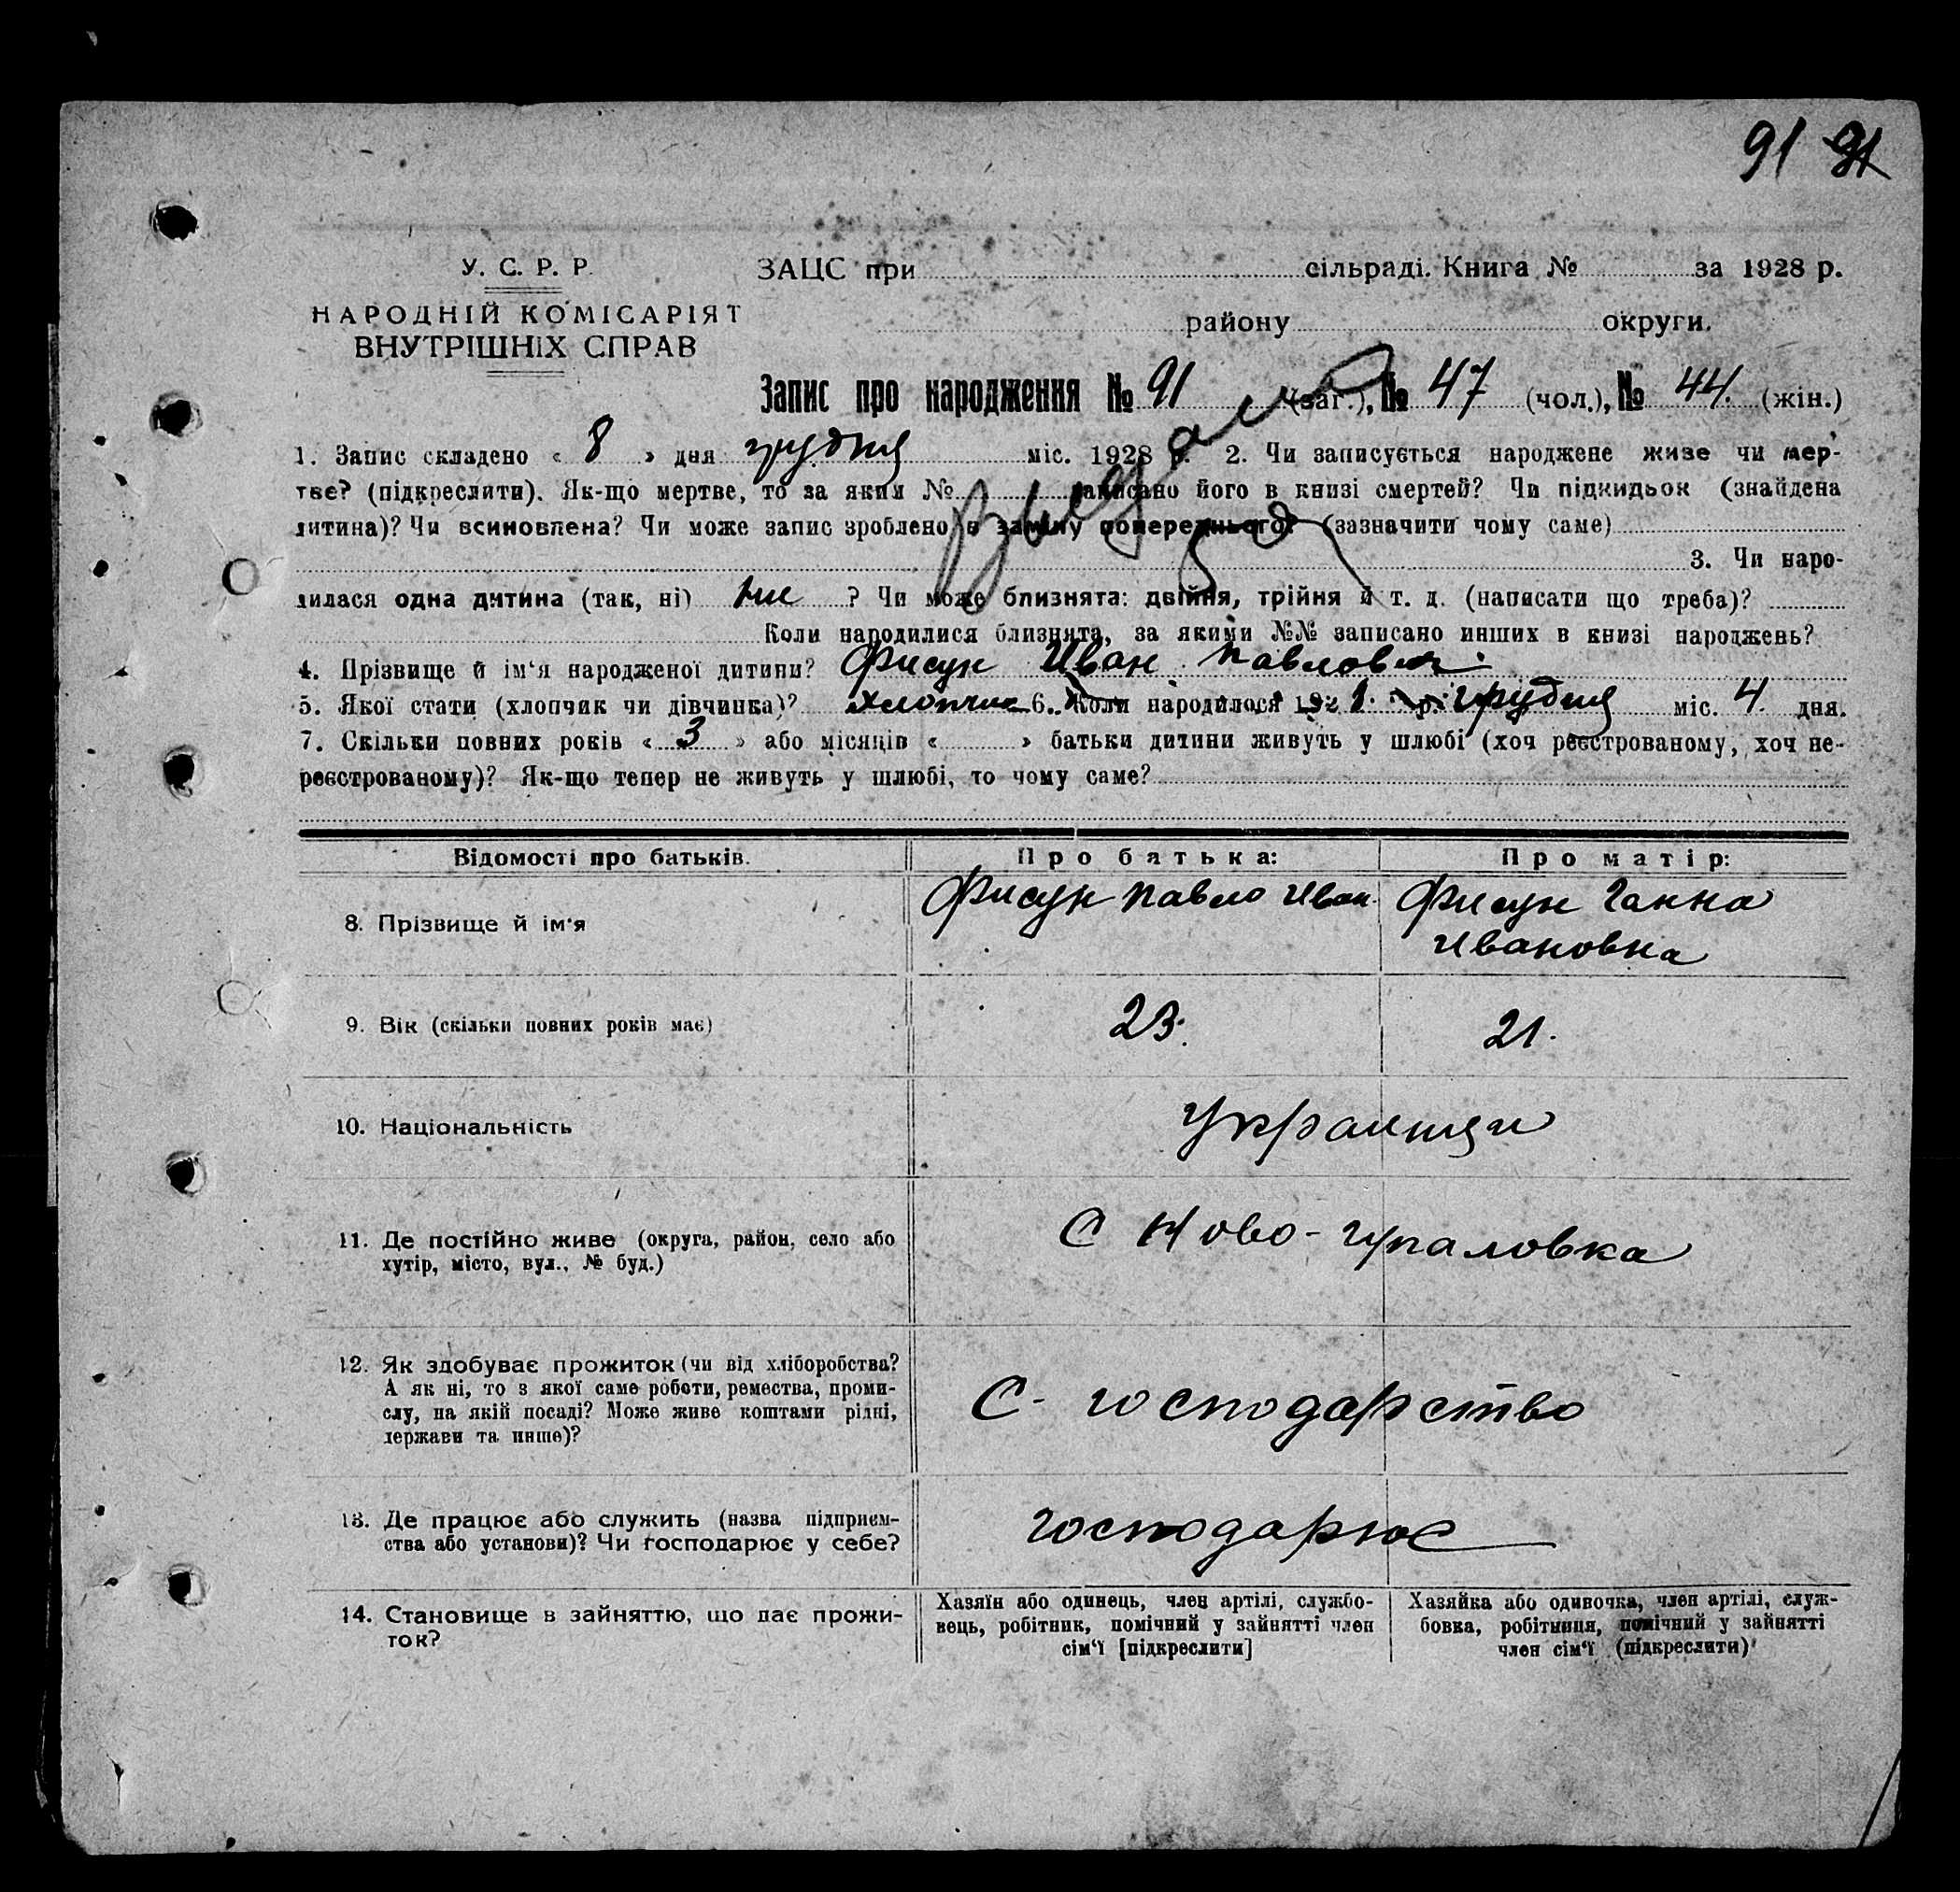 91 91
У. С. Р. Р.
НАРОДНІЙ КОМІСАРІЯТ
ВНУТРІШНІХ СПРАВ
ЗАЦС при сільраді. Книга № за 1928 р.
району округи.
Запис про народження № 91 (заг.), № 47 (чол.), № 44. (жін.)
1. Запис складено « 8 » дня грудня міс. 1928 р. 2. Чи записується народжене живе чи мер-
тве? (підкреслити). Як-що мертве, то за яким № записано його в книзі смертей? Чи підкидьок (знайдена
дитина)? Чи всиновлена? Чи може запис зроблено в заміну попереднього? (зазначити чому саме)
3. Чи наро-
дилася одна дитина (так, ні) ? Чи може близнята: двійня, трійня й т. д. (написати що треба)?
Коли народилися близнята, за якими №№ записано инших в книзі народжень?
4. Прізвище й ім'я народженої дитини? Фисун Иван Павлович
5. Якої стати (хлопчик чи дівчинка)? хлопчик 6. Коли народилося 1928 р. грудня міс. 4 дня.
7. Скільки повних років « 3 » або місяців « » батьки дитини живуть у шлюбі (хоч реєстрованому, хоч не-
реєстрованому)? Як-що тепер не живуть у шлюбі, то чому саме?
Відомості про батьків. Про батька: Про матір:
8. Прізвище й ім'я Фисун Павло Иван. Фисун Ганна
Ивановна
9. Вік (скільки повних років має) 23. 21.
10. Національність Украинци
11. Де постійно живе (округа, район, село або
хутір, місто, вул., № буд.)
С Ново-Гупаловка
12. Як здобуває прожиток (чи від хліборобства?
А як ні, то з якої саме роботи, ремества, проми-
слу, на якій посаді? Може живе коштами рідні,
держави та инше)?
С-господарство
13. Де працює або служить (назва підприєм-
ства або установи)? Чи господарює у себе?
господарює
14. Становище в зайняттю, що дає прожи-
ток?
Хазяїн або одинець, член артілі, службо-
вець, робітник, помічний у зайнятті член
сім'ї [підкреслити]
Хазяйка або одиночка, член артілі, служ-
бовка, робітниця, помічний у зайнятті
член сім'ї (підкреслити)